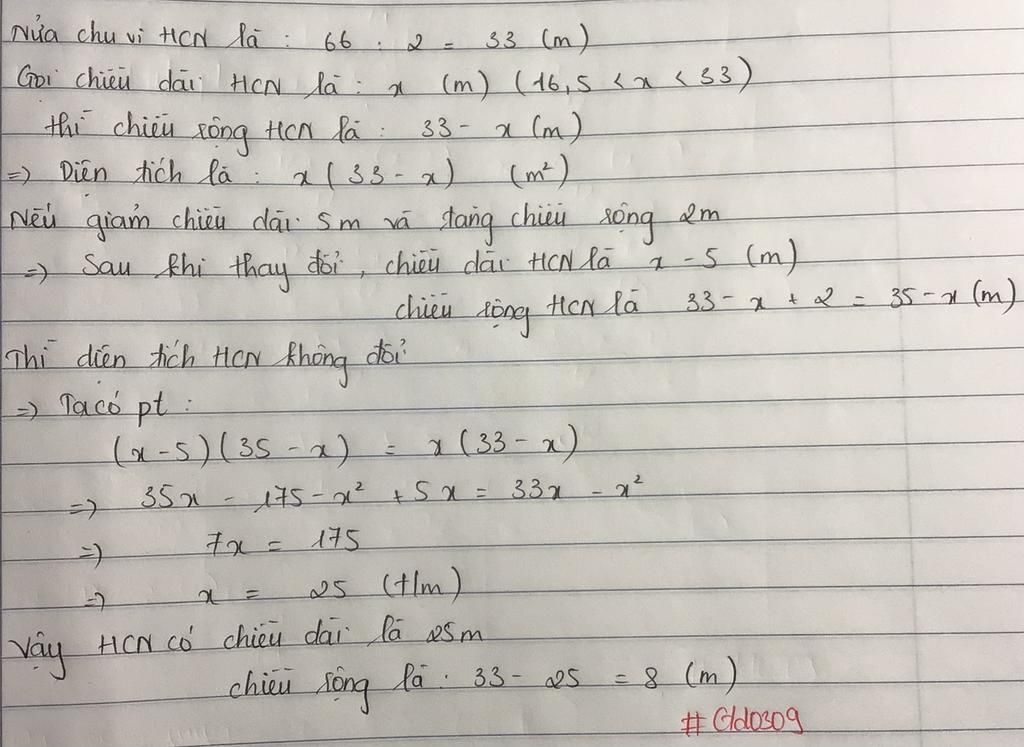 Nửa chu vi HCN là : 66 : 2 = 33 (m)
Gọi chiều dài HCN là : x (m) (16,5 < x < 33)
thì chiều rộng HCN là : 33 - x (m)
=> Diện tích là : x(33 - x) (m²)
Nếu giảm chiều dài 5m và tăng chiều rộng 2m
=> Sau khi thay đổi, chiều dài HCN là x - 5 (m)
chiều rộng HCN là 33 - x + 2 = 35 - x (m)
Thì diện tích HCN không đổi
=> Ta có pt :
(x - 5)(35 - x) = x(33 - x)
=> 35x - 175 - x² + 5x = 33x - x²
=> 7x = 175
=> x = 25 (t/m)
Vậy HCN có chiều dài là 25m
chiều rộng là : 33 - 25 = 8 (m)